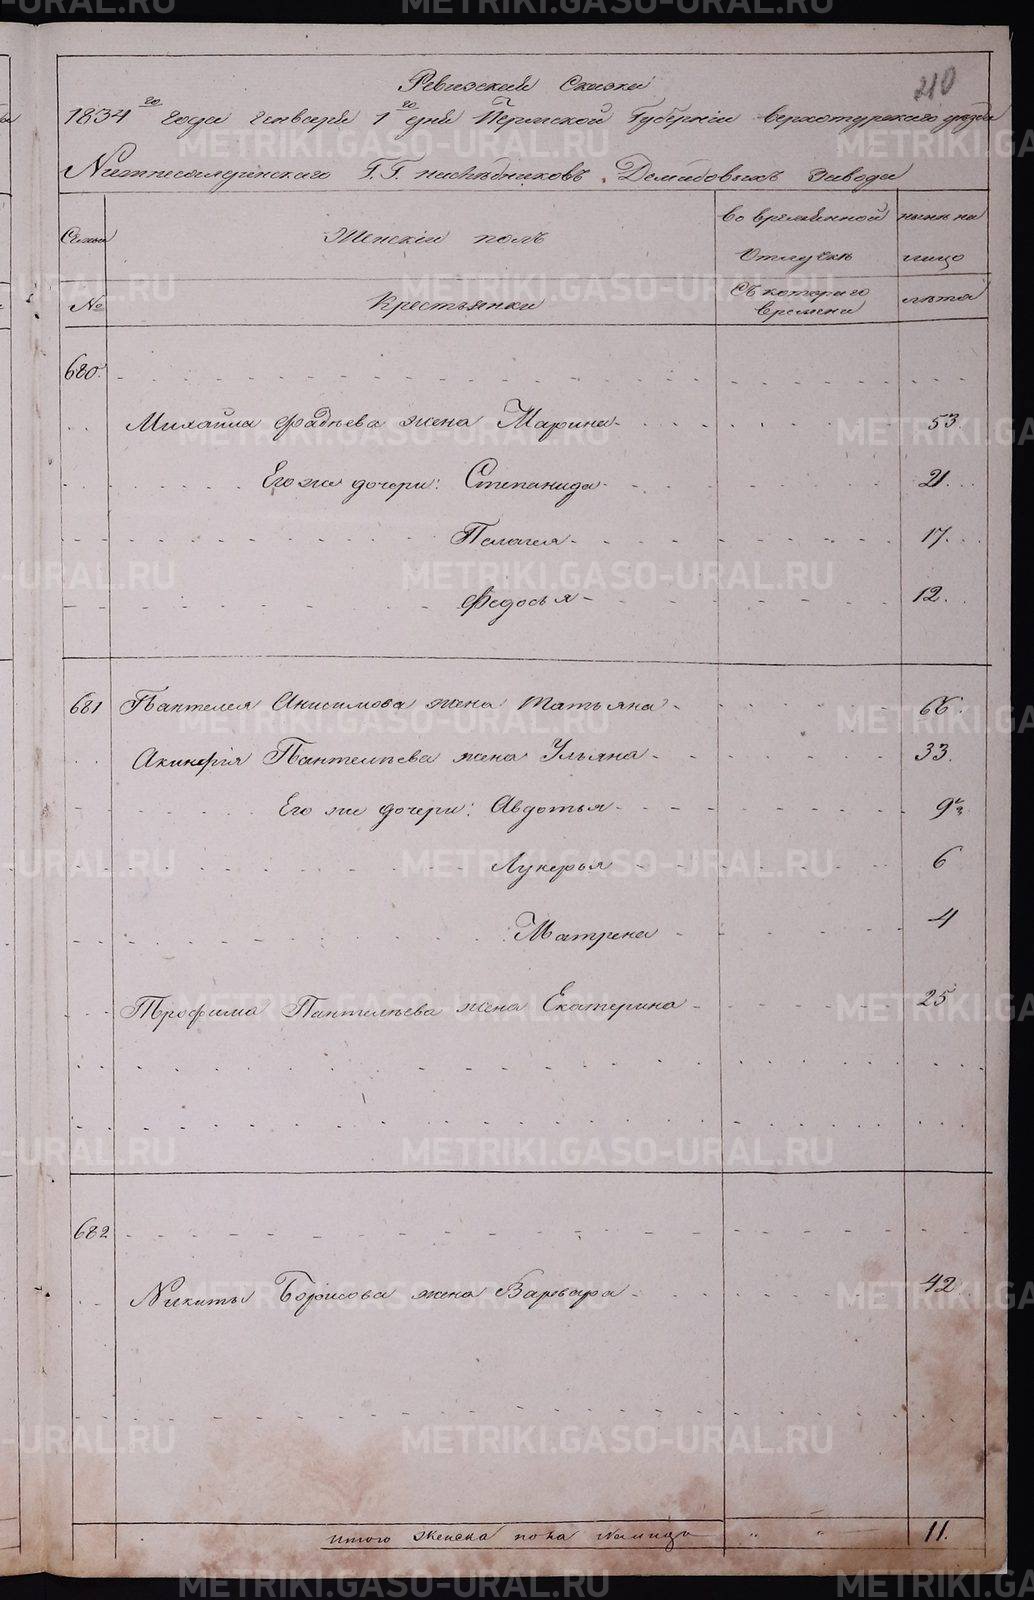 210
Ревизской Сказки
1834го года Генваря 1го дня Пермской Губернии Верхотурского уезда
Нижнесалдинского Г.Г. наследниковъ Демидовыхъ Завода
Семьи
Женскій полъ
во временной отлучкѣ
нынѣ на лицо
№
Крестьянки
Съ котораго времени
лѣта
680.
Михайла Фадѣева жена Марина 53.
Его же дочери: Степанида 21.
Палагея 17.
Федосья 12.
681 Пантелея Анисимова жена Татьяна 66.
Акинфія Пантелѣева жена Ульяна 33.
Его же дочери: Авдотья 9½
Лукерья 6
Матрена 4
Трофима Пантелѣева жена Екатерина 25
682
Никиты Борисова жена Варвара 42.
Итого женска пола на лицо " " 11.
METRIKI.GASO-URAL.RU